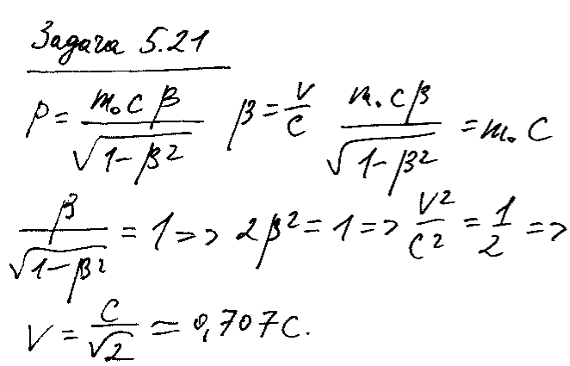 Задача 5.21
p = m₀cβ/√(1-β²) β = v/c m₀cβ/√(1-β²) = m₀c
β/√(1-β²) = 1 => 2β² = 1 => v²/c² = 1/2 =>
v = c/√2 ≃ 0,707c.